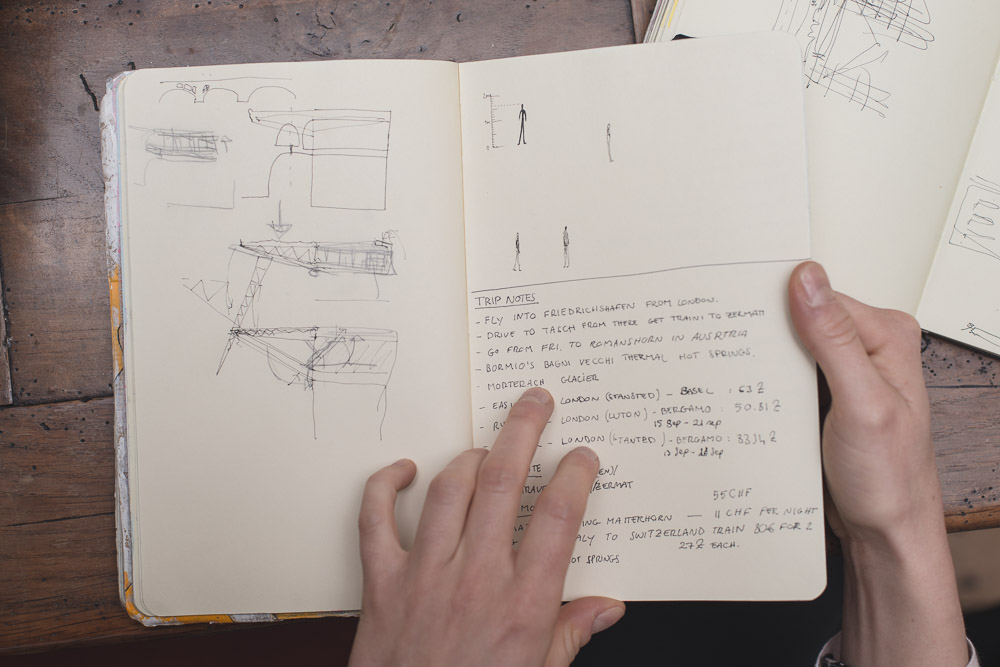 TRIP NOTES
- FLY INTO FRIEDRICHSHAFEN FROM LONDON.
- DRIVE TO TASCH FROM THERE GET TRAIN TO ZERMATT
- GO FROM FRI. TO ROMANSHORN IN AUSRTRIA
- BORMIO'S BAGNI VECCHI THERMAL HOT SPRINGS.
- MORTERACH GLACIER
- EAS LONDON (STANSTED) - BASEL : 63
- LONDON (LUTON) - BERGAMO : 50.81
15 Sep - 21 sep
LONDON (STANTED) - BERGAMO :
13 Sep - 18 Sep
/ZERMAT
55 CHF
MATTERHORN — 11 CHF PER NIGHT
TO SWITZERLAND TRAIN FOR 2
EACH.
HOT SPRINGS